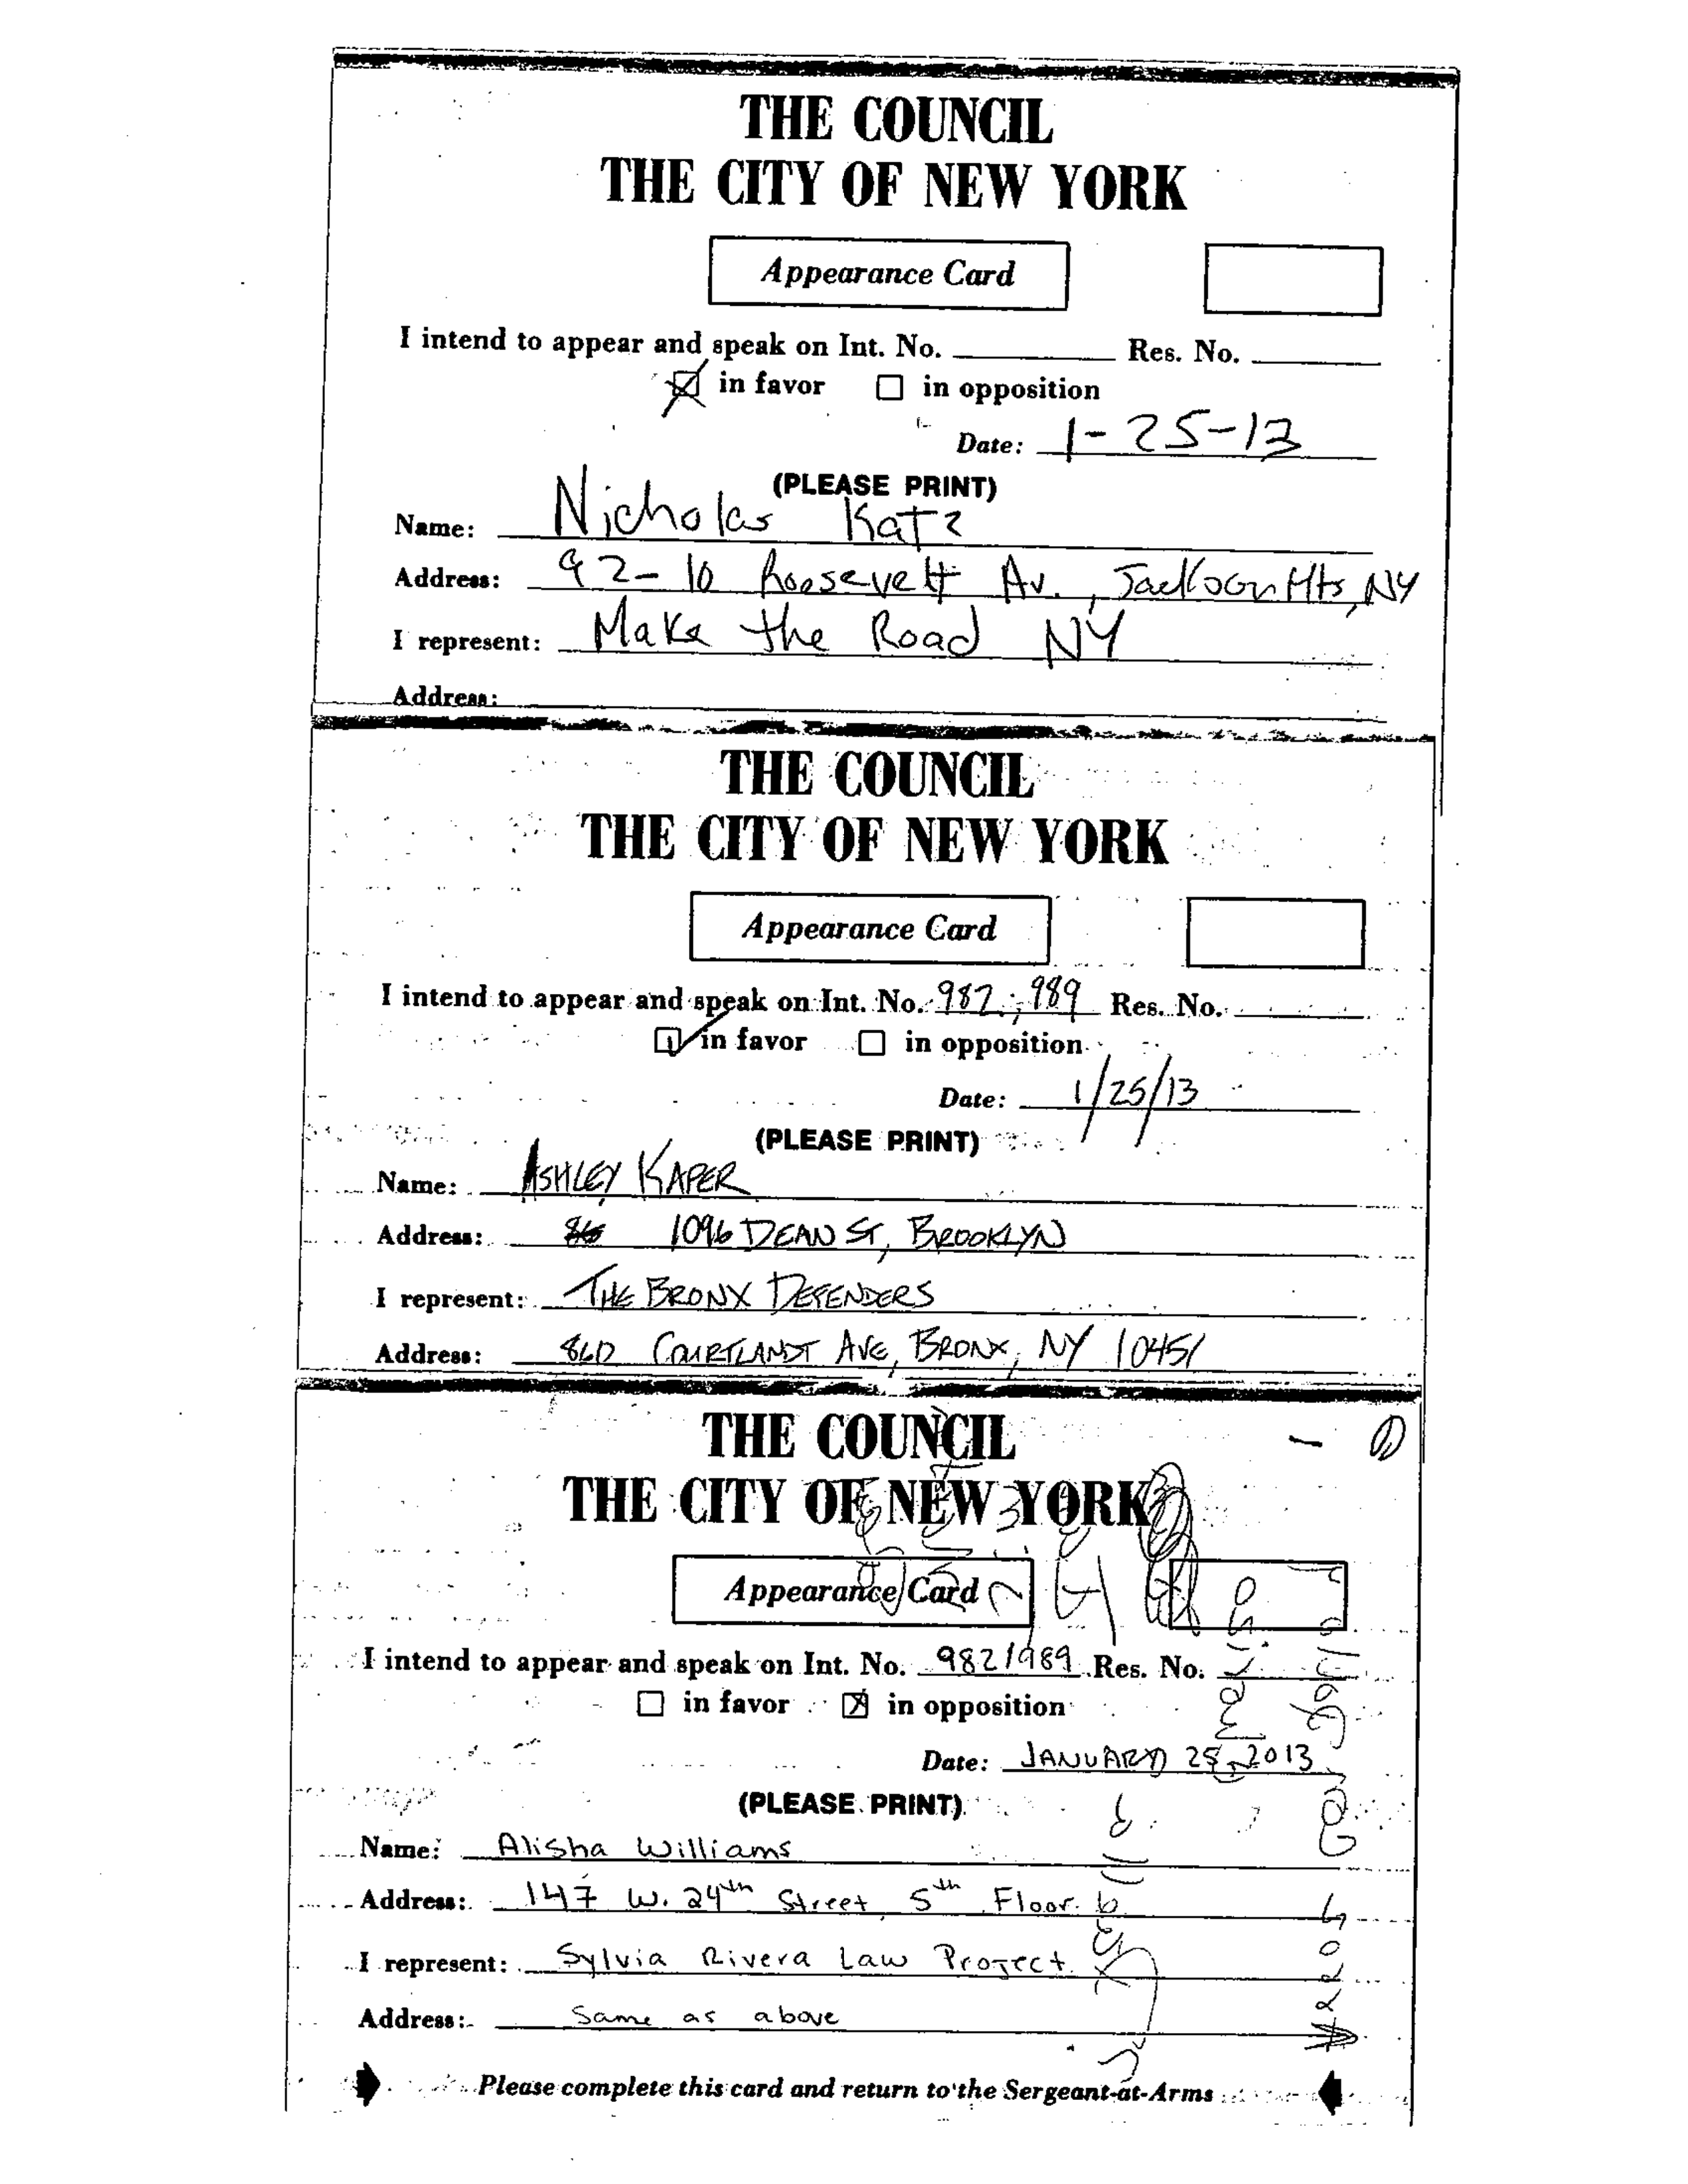 THE COUNCIL
THE CITY OF NEW YORK
Appearance Card
I intend to appear and speak on Int. No. Res. No.
in favor in opposition
Date: 1-25-13
(PLEASE PRINT)
Name: Nicholas Katz
Address: 92-10 Roosevelt Av., Jackson Hts, NY
I represent: Make the Road NY
Address:
THE COUNCIL
THE CITY OF NEW YORK
Appearance Card
I intend to appear and speak on Int. No. 982; 989 Res. No.
in favor in opposition
Date: 1/25/13
(PLEASE PRINT)
Name: ASHLEY KAPER
Address: 1096 DEAN ST, BROOKLYN
I represent: THE BRONX DEFENDERS
Address: 860 COURTLANDT AVE, BRONX, NY 10451
THE COUNCIL
THE CITY OF NEW YORK
Appearance Card
I intend to appear and speak on Int. No. 982/989 Res. No.
in favor in opposition
Date: JANUARY 25, 2013
(PLEASE PRINT)
Name: Alisha Williams
Address: 147 W. 24th Street, 5th Floor
I represent: Sylvia Rivera Law Project
Address: Same as above
Please complete this card and return to the Sergeant-at-Arms